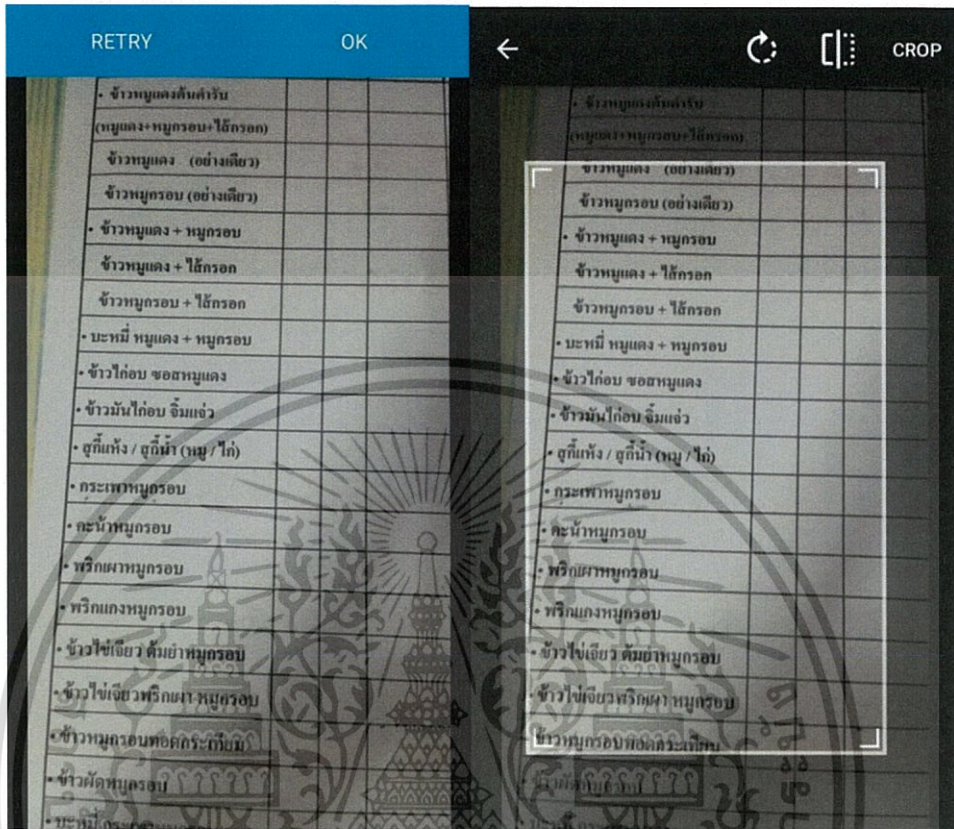 RETRY OK
• ข้าวหมูแดงต้นตำรับ
(หมูแดง+หมูกรอบ+ไส้กรอก)
ข้าวหมูแดง (อย่างเดียว)
ข้าวหมูกรอบ (อย่างเดียว)
• ข้าวหมูแดง + หมูกรอบ
ข้าวหมูแดง + ไส้กรอก
ข้าวหมูกรอบ + ไส้กรอก
• บะหมี่ หมูแดง + หมูกรอบ
• ข้าวไก่อบ ซอสหมูแดง
• ข้าวมันไก่อบ จิ้มแจ่ว
• สุกี้แห้ง / สุกี้น้ำ (หมู / ไก่)
• กระเพาหมูกรอบ
• คะน้าหมูกรอบ
• พริกเผาหมูกรอบ
• พริกแกงหมูกรอบ
• ข้าวไข่เจียว ต้มยำหมูกรอบ
• ข้าวไข่เจียวพริกเผา หมูกรอบ
• ข้าวหมูกรอบทอดกระเทียม
• ข้าวผัดหมูกรอบ
CROP
• ข้าวหมูแดงต้นตำรับ
(หมูแดง+หมูกรอบ+ไส้กรอก)
ข้าวหมูแดง (อย่างเดียว)
ข้าวหมูกรอบ (อย่างเดียว)
• ข้าวหมูแดง + หมูกรอบ
ข้าวหมูแดง + ไส้กรอก
ข้าวหมูกรอบ + ไส้กรอก
• บะหมี่ หมูแดง + หมูกรอบ
• ข้าวไก่อบ ซอสหมูแดง
• ข้าวมันไก่อบ จิ้มแจ่ว
• สุกี้แห้ง / สุกี้น้ำ (หมู / ไก่)
• กระเพาหมูกรอบ
• คะน้าหมูกรอบ
• พริกเผาหมูกรอบ
• พริกแกงหมูกรอบ
• ข้าวไข่เจียว ต้มยำหมูกรอบ
• ข้าวไข่เจียวพริกเผา หมูกรอบ
ข้าวหมูกรอบทอดกระเทียม
• ข้าวผัดหมูกรอบ